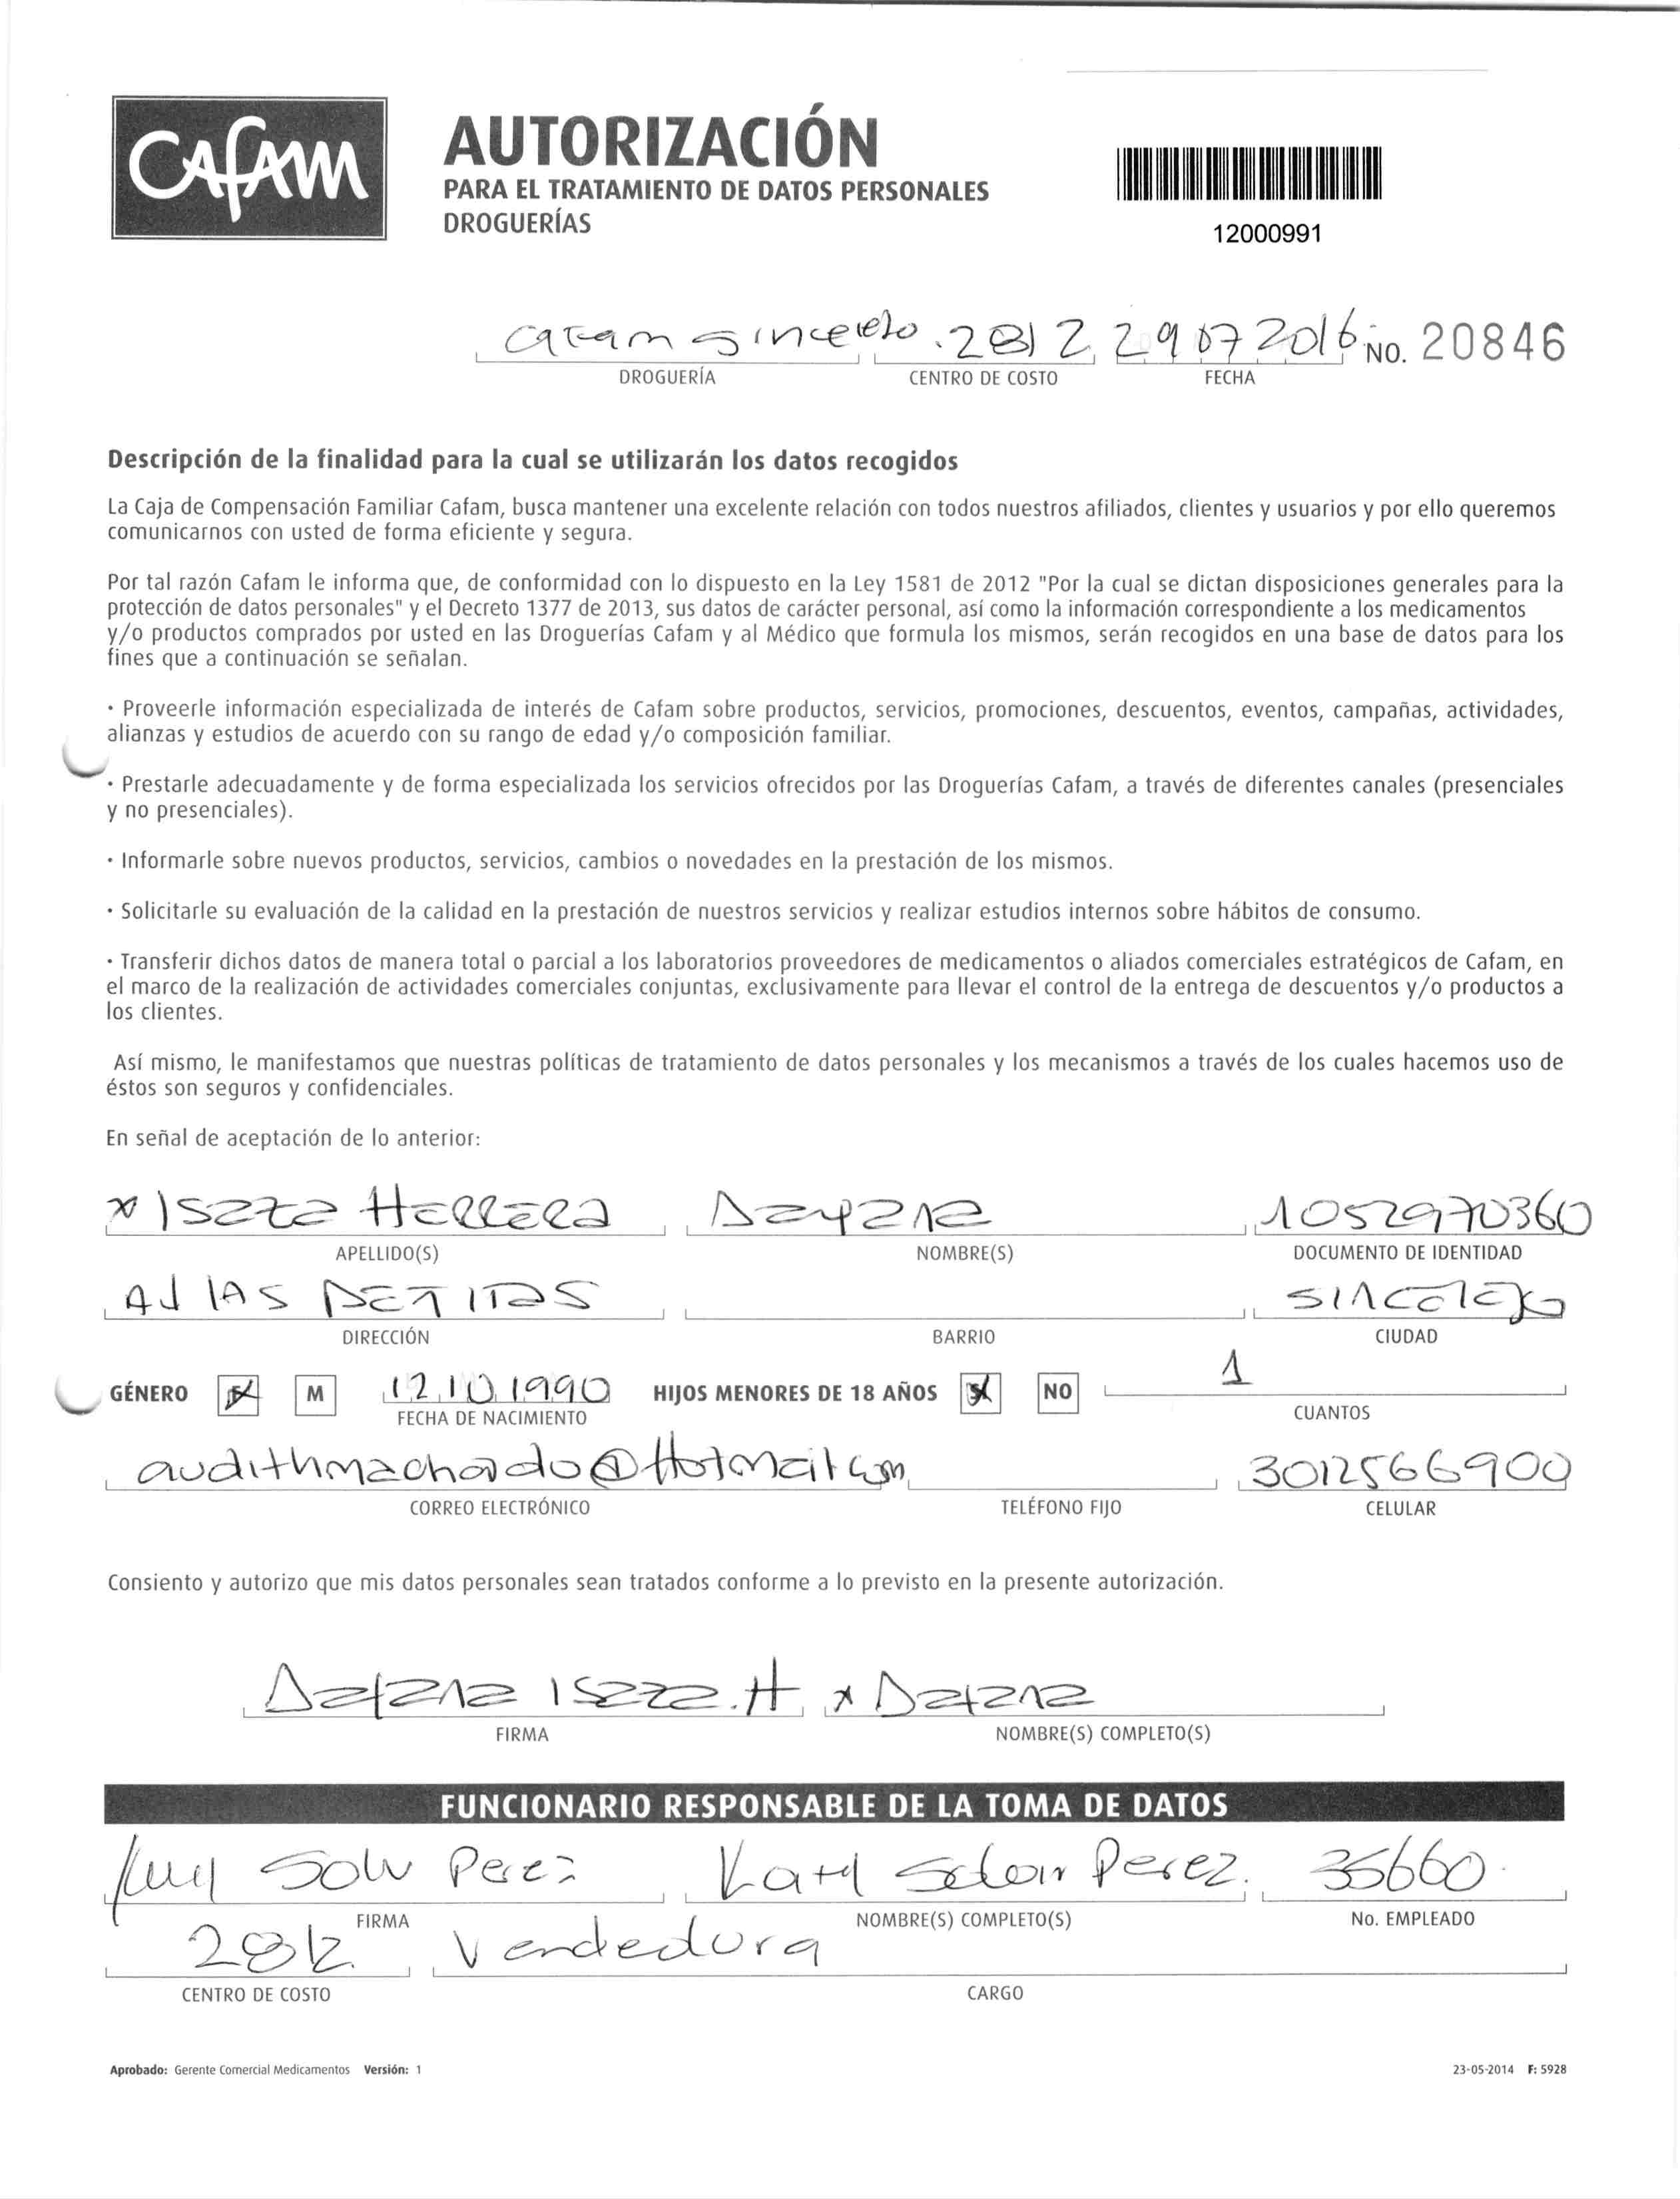 CAFAM
AUTORIZACIÓN
PARA EL TRATAMIENTO DE DATOS PERSONALES
DROGUERÍAS
12000991
Cafam Sincelejo 2812 29 07 2016 No. 20846
DROGUERÍA CENTRO DE COSTO FECHA
Descripción de la finalidad para la cual se utilizarán los datos recogidos
La Caja de Compensación Familiar Cafam, busca mantener una excelente relación con todos nuestros afiliados, clientes y usuarios y por ello queremos
comunicarnos con usted de forma eficiente y segura.
Por tal razón Cafam le informa que, de conformidad con lo dispuesto en la Ley 1581 de 2012 "Por la cual se dictan disposiciones generales para la
protección de datos personales" y el Decreto 1377 de 2013, sus datos de carácter personal, así como la información correspondiente a los medicamentos
y/o productos comprados por usted en las Droguerías Cafam y al Médico que formula los mismos, serán recogidos en una base de datos para los
fines que a continuación se señalan.
· Proveerle información especializada de interés de Cafam sobre productos, servicios, promociones, descuentos, eventos, campañas, actividades,
alianzas y estudios de acuerdo con su rango de edad y/o composición familiar.
· Prestarle adecuadamente y de forma especializada los servicios ofrecidos por las Droguerías Cafam, a través de diferentes canales (presenciales
y no presenciales).
· Informarle sobre nuevos productos, servicios, cambios o novedades en la prestación de los mismos.
· Solicitarle su evaluación de la calidad en la prestación de nuestros servicios y realizar estudios internos sobre hábitos de consumo.
· Transferir dichos datos de manera total o parcial a los laboratorios proveedores de medicamentos o aliados comerciales estratégicos de Cafam, en
el marco de la realización de actividades comerciales conjuntas, exclusivamente para llevar el control de la entrega de descuentos y/o productos a
los clientes.
Así mismo, le manifestamos que nuestras políticas de tratamiento de datos personales y los mecanismos a través de los cuales hacemos uso de
éstos son seguros y confidenciales.
En señal de aceptación de lo anterior:
x Isaza Herrera Dayana 1052970360
APELLIDO(S) NOMBRE(S) DOCUMENTO DE IDENTIDAD
las Sincelejo
DIRECCIÓN BARRIO CIUDAD
GÉNERO F M 12 10 1990 HIJOS MENORES DE 18 AÑOS SI NO 1
FECHA DE NACIMIENTO CUANTOS
audithmachado@Hotmail.com 3012566900
CORREO ELECTRÓNICO TELÉFONO FIJO CELULAR
Consiento y autorizo que mis datos personales sean tratados conforme a lo previsto en la presente autorización.
Dayana Isaza. H x Dayana
FIRMA NOMBRE(S) COMPLETO(S)
FUNCIONARIO RESPONSABLE DE LA TOMA DE DATOS
Perez Katy Perez. 35660
FIRMA NOMBRE(S) COMPLETO(S) No. EMPLEADO
2812 Vendedora
CENTRO DE COSTO CARGO
Aprobado: Gerente Comercial Medicamentos Versión: 1 23-05-2014 F: 5928